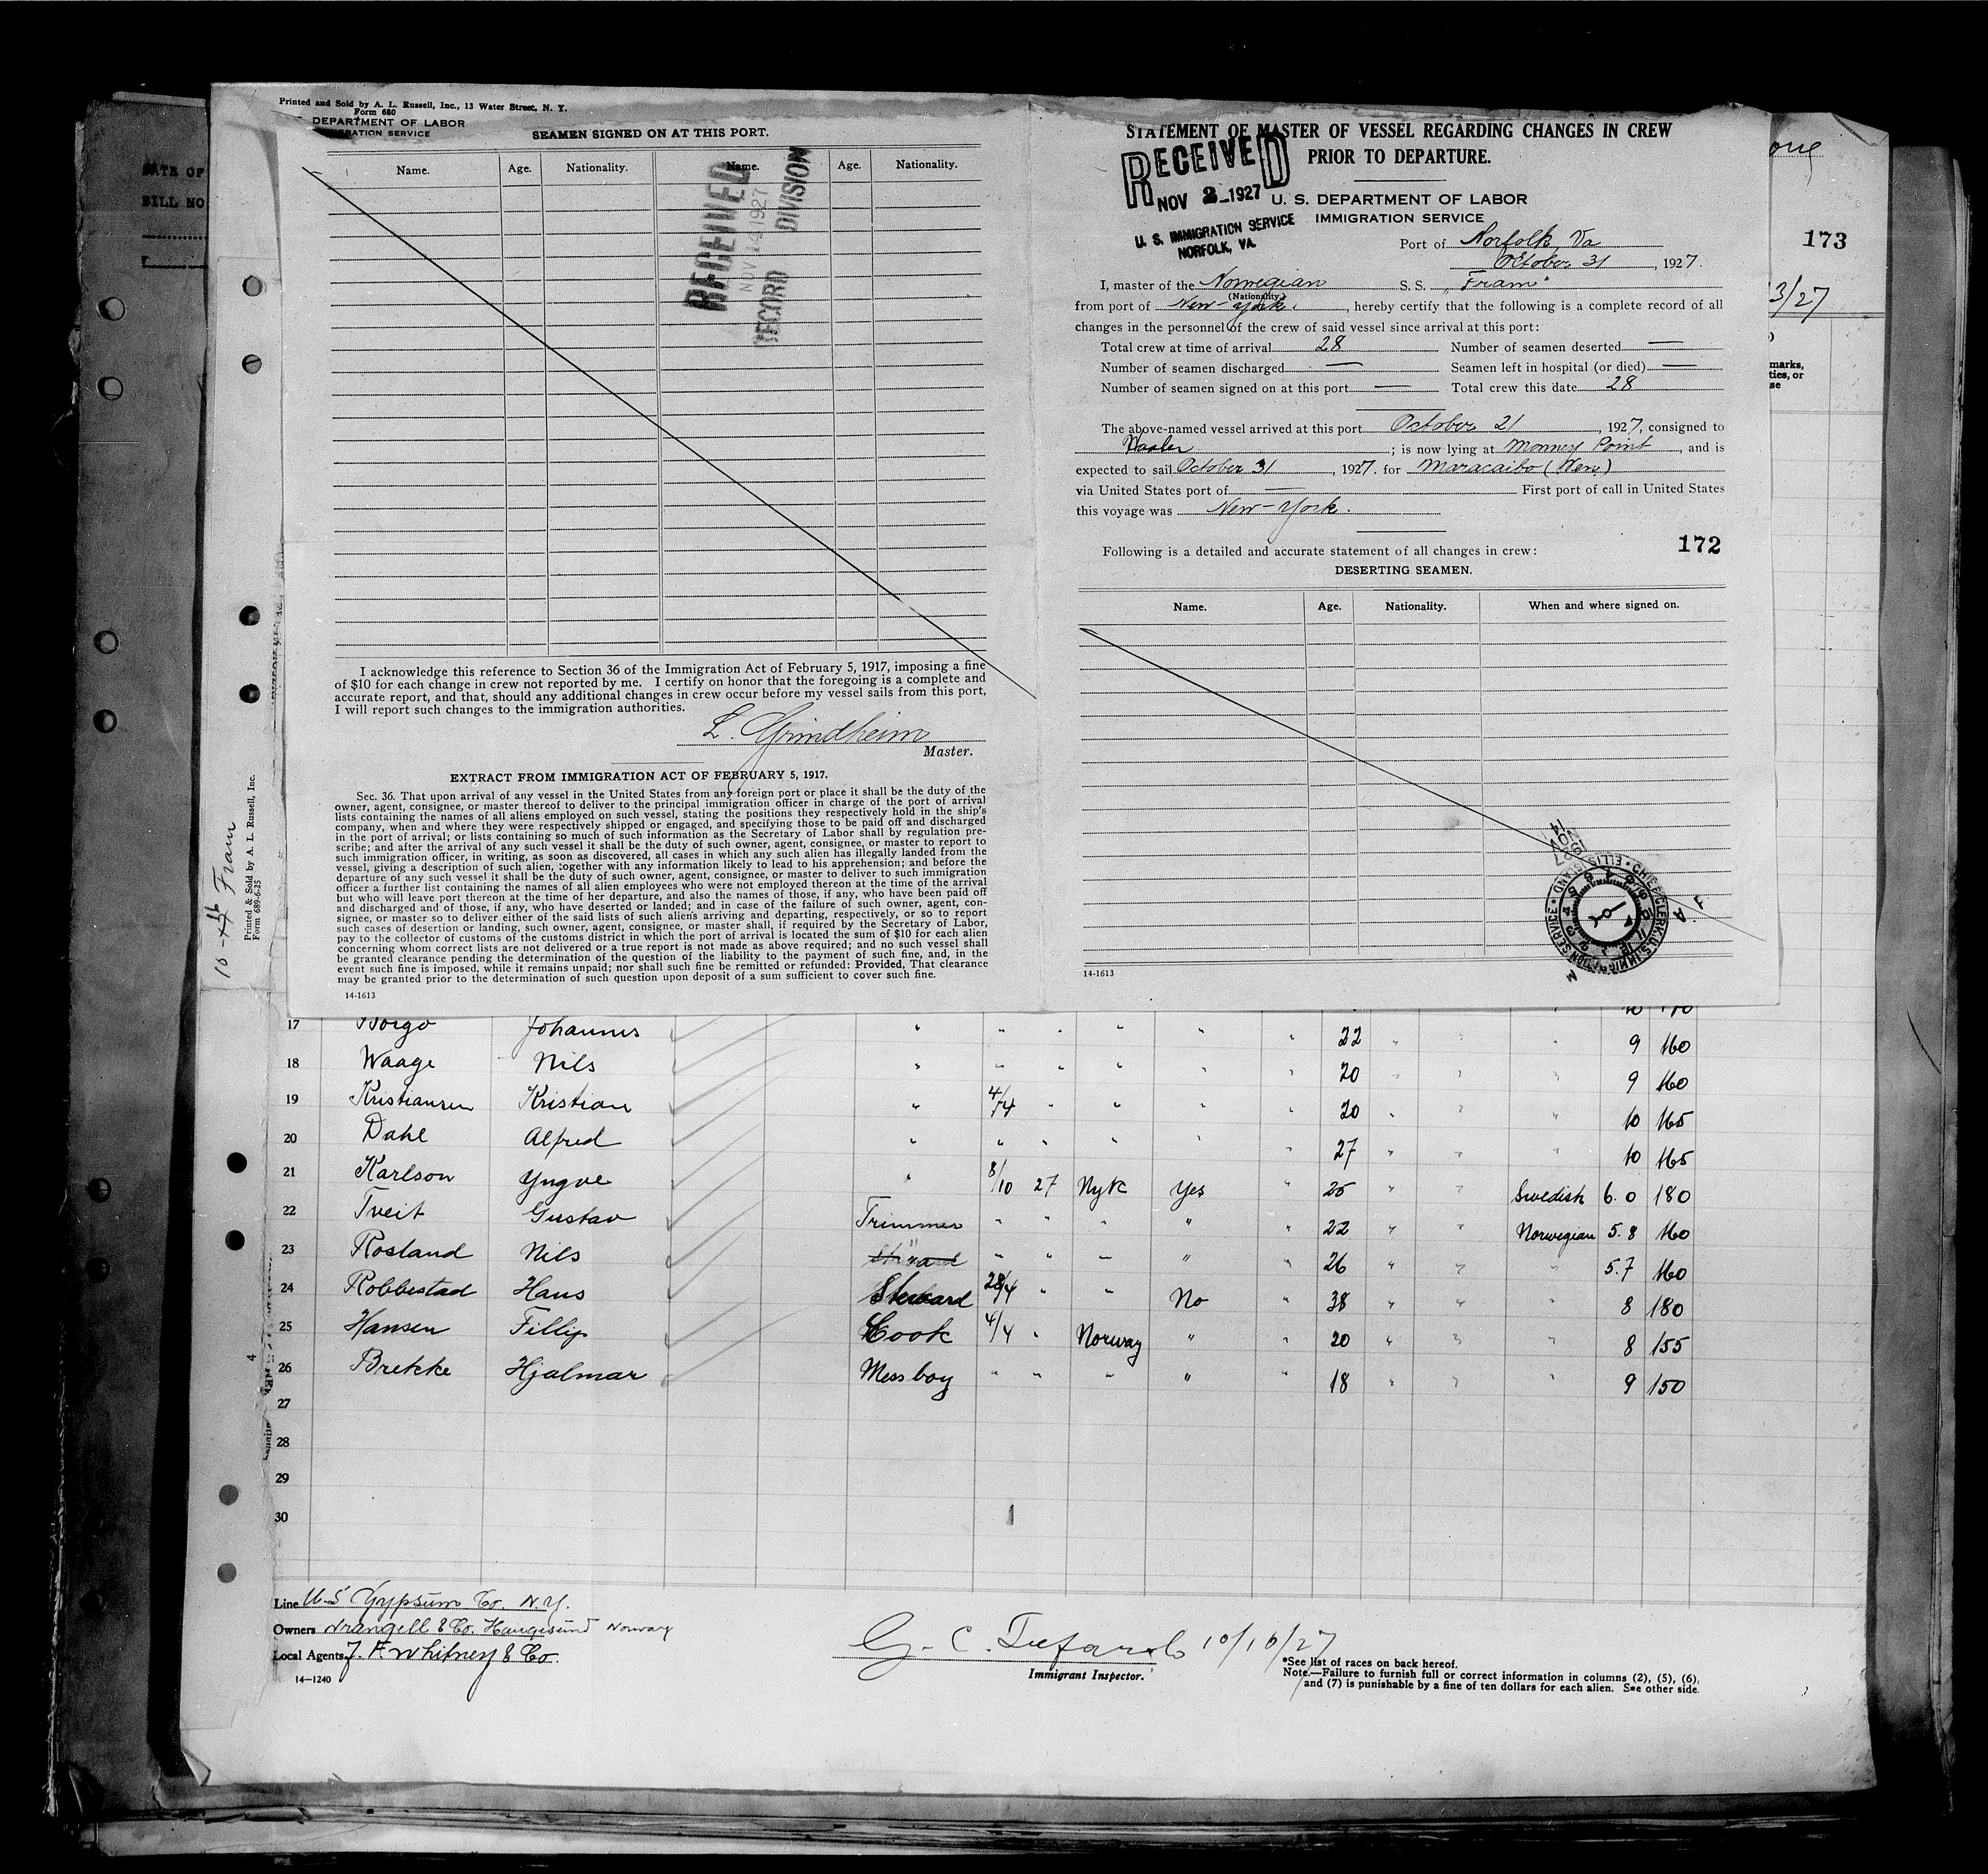 Printed and Sold by A. L. Russell, Inc., 13 Water Street, N. Y.
Form 680
DEPARTMENT OF LABOR
SEAMEN SIGNED ON AT THIS PORT.
Name. Age. Nationality. Name. Age. Nationality.
RECEIVED
NOV 14 1927
RECORD DIVISION
I acknowledge this reference to Section 36 of the Immigration Act of February 5, 1917, imposing a fine
of $10 for each change in crew not reported by me. I certify on honor that the foregoing is a complete and
accurate report, and that, should any additional changes in crew occur before my vessel sails from this port,
I will report such changes to the immigration authorities.
L. Grindheim
Master.
EXTRACT FROM IMMIGRATION ACT OF FEBRUARY 5, 1917.
Sec. 36. That upon arrival of any vessel in the United States from any foreign port or place it shall be the duty of the
owner, agent, consignee, or master thereof to deliver to the principal immigration officer in charge of the port of arrival
lists containing the names of all aliens employed on such vessel, stating the positions they respectively hold in the ship's
company, when and where they were respectively shipped or engaged, and specifying those to be paid off and discharged
in the port of arrival; or lists containing so much of such information as the Secretary of Labor shall by regulation pre-
scribe; and after the arrival of any such vessel it shall be the duty of such owner, agent, consignee, or master to report to
such immigration officer, in writing, as soon as discovered, all cases in which any such alien has illegally landed from the
vessel, giving a description of such alien, together with any information likely to lead to his apprehension; and before the
departure of any such vessel it shall be the duty of such owner, agent, consignee, or master to deliver to such immigration
officer a further list containing the names of all alien employees who were not employed thereon at the time of the arrival
but who will leave port thereon at the time of her departure, and also the names of those, if any, who have been paid off
and discharged and of those, if any, who have deserted or landed; and in case of the failure of such owner, agent, con-
signee, or master so to deliver either of the said lists of such aliens arriving and departing, respectively, or so to report
such cases of desertion or landing, such owner, agent, consignee, or master shall, if required by the Secretary of Labor,
pay to the collector of customs of the customs district in which the port of arrival is located the sum of $10 for each alien
concerning whom correct lists are not delivered or a true report is not made as above required; and no such vessel shall
be granted clearance pending the determination of the question of the liability to the payment of such fine, and, in the
event such fine is imposed, while it remains unpaid; nor shall such fine be remitted or refunded: Provided, That clearance
may be granted prior to the determination of such question upon deposit of a sum sufficient to cover such fine.
14-1613
STATEMENT OF MASTER OF VESSEL REGARDING CHANGES IN CREW
PRIOR TO DEPARTURE.
RECEIVED
NOV 2 1927
U. S. IMMIGRATION SERVICE
NORFOLK, VA.
U. S. DEPARTMENT OF LABOR
IMMIGRATION SERVICE
Port of Norfolk, Va
October 31, 1927.
I, master of the Norwegian S. S. "Fram"
(Nationality.)
from port of New-York., hereby certify that the following is a complete record of all
changes in the personnel of the crew of said vessel since arrival at this port:
Total crew at time of arrival 28 Number of seamen deserted —
Number of seamen discharged — Seamen left in hospital (or died) —
Number of seamen signed on at this port — Total crew this date 28
The above-named vessel arrived at this port October 21, 1927, consigned to
; is now lying at Monney Point, and is
expected to sail October 31, 1927. for Maracaibo (Ven)
via United States port of — First port of call in United States
this voyage was New-York.
172
Following is a detailed and accurate statement of all changes in crew:
DESERTING SEAMEN.
Name. Age. Nationality. When and where signed on.
1927
NOV
14
CHIEF CLERK U.S. IMMIGRATION SERVICE ELLIS ISLAND
14-1613
173
3/27
marks,
ties, or
se
DATE OF
BILL NO
Fram
Printed & Sold by A. L. Russell, Inc.
Form 689-6-25
17 Borgo Johannes " " " " " " 22 " " " 9 160
18 Waage Nils " " " " " " 20 " " " 9 160
19 Kristiansen Kristian " 4/4 " " " " 20 " " " 10 165
20 Dahl Alfred " " " " " " 27 " " " 10 165
21 Karlson Yngve " 8/10 27 NyK Yes " 25 " " Swedish 6.0 180
22 Tveit Gustav Trimmer " " " " " 22 " " Norwegian 5.8 160
23 Rosland Nils " " " " " " 26 " " " 5.7 160
24 Robbestad Hans Steward 28/4 " " No " 38 " " " 8 180
25 Hansen Fillip Cook 4/4 " Norway " " 20 " " " 8 155
26 Brekke Hjalmar Mess boy " " " " " 18 " " " 9 150
27
28
29
30
Line U-S Gypsum Co. N.Y.
Owners Wrangell & Co. Haugesund Norway
Local Agents J. F. Whitney & Co.
14—1240
10/16/27
Immigrant Inspector.
*See list of races on back hereof.
Note.—Failure to furnish full or correct information in columns (2), (5), (6),
and (7) is punishable by a fine of ten dollars for each alien. See other side.